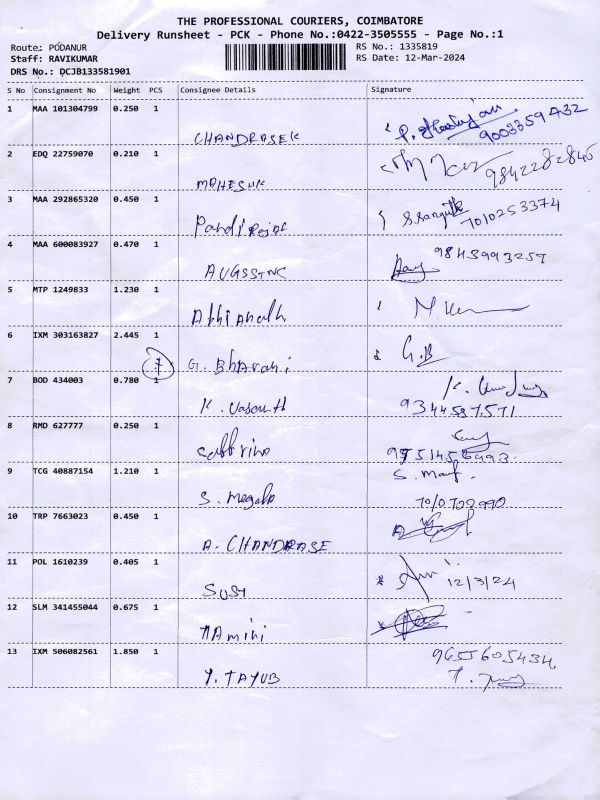 THE PROFESSIONAL COURIERS, COIMBATORE
Delivery Runsheet - PCK - Phone No.:0422-3505555 - Page No.:1
Route: PODANUR
RS No.: 1335819
Staff: RAVIKUMAR
RS Date: 12-Mar-2024
DRS No.: DCJB133581901
S No Consignment No Weight PCS Consignee Details Signature
1 MAA 101304799 0.250 1
9003359432
CHANDRASEK
2 EDQ 22759070 0.210 1
9842282845
MAHESHK
3 MAA 292865320 0.450 1
7010253374
4 MAA 600083927 0.470 1
9843993257
5 MTP 1249833 1.230 1
6 IXM 303163827 2.445 1
G.B
G. Bharani
7 BOD 434003 0.780 1
9344587571
K. Vasanth
8 RMD 627777 0.250 1
9 TCG 40887154 1.210 1
S. Megala
10 TRP 7663023 0.450 1
A. CHANDRASE
11 POL 1610239 0.405 1
12/3/24
12 SLM 341455044 0.675 1
13 IXM 506082561 1.850 1
9655605434
Y. TAYUB